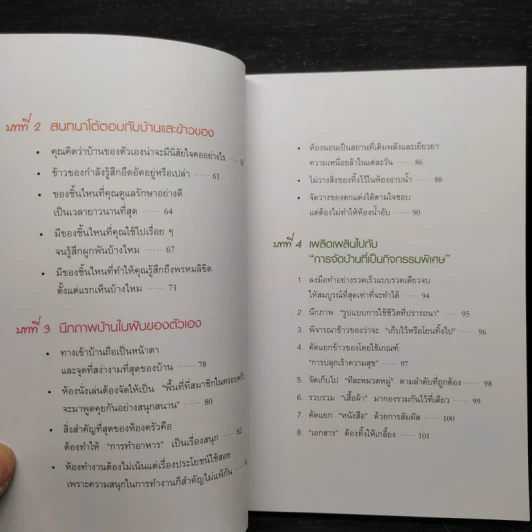 บทที่ 2 สนทนาโต้ตอบกับบ้านและข้าวของ
• คุณคิดว่าบ้านของตัวเองน่าจะมีนิสัยใจคออย่างไร
• ข้าวของกำลังรู้สึกอึดอัดอยู่หรือเปล่า ...... 61
• ของชิ้นไหนที่คุณดูแลรักษาอย่างดี
เป็นเวลายาวนานที่สุด ...... 64
• มีของชิ้นไหนที่คุณใช้ไปเรื่อย ๆ
จนรู้สึกผูกพันบ้างไหม ...... 67
• มีของชิ้นไหนที่ทำให้คุณรู้สึกถึงพรหมลิขิต
ตั้งแต่แรกเห็นบ้างไหม ...... 71
บทที่ 3 นึกภาพบ้านในฝันของตัวเอง
• ทางเข้าบ้านถือเป็นหน้าตา
และจุดที่สง่างามที่สุดของบ้าน ...... 78
• ห้องนั่งเล่นต้องจัดให้เป็น “พื้นที่ที่สมาชิกในครอบครัว
จะมาพูดคุยกันอย่างสนุกสนาน” ...... 80
• สิ่งสำคัญที่สุดของห้องครัวคือ
ต้องทำให้ “การทำอาหาร” เป็นเรื่องสนุก ...... 82
• ห้องทำงานต้องไม่เน้นแต่เรื่องประโยชน์ใช้สอย
เพราะความสนุกในการทำงานก็สำคัญไม่แพ้กัน
• ห้องนอนเป็นสถานที่เติมพลังและเยียวยา
ความเหนื่อยล้าในแต่ละวัน ...... 86
• ไม่วางสิ่งของทิ้งไว้ในห้องอาบน้ำ ...... 88
• จัดวางของตกแต่งได้ตามใจชอบ
แต่ต้องไม่ทำให้ห้องน้ำอับ ...... 90
บทที่ 4 เพลิดเพลินไปกับ
“การจัดบ้านที่เป็นกิจกรรมพิเศษ”
1. ลงมือทำอย่างรวดเร็วแบบรวดเดียวจบ
ให้สมบูรณ์ที่สุดเท่าที่จะทำได้ ...... 94
2. นึกภาพ “รูปแบบการใช้ชีวิตที่ปรารถนา” ...... 95
3. พิจารณาข้าวของว่าจะ “เก็บไว้หรือโยนทิ้งไป” ...... 96
4. คัดแยกข้าวของโดยใช้เกณฑ์
“การปลุกเร้าความสุข” ...... 97
5. จัดเก็บไป “ทีละหมวดหมู่” ตามลำดับที่ถูกต้อง ...... 98
6. รวบรวม “เสื้อผ้า” มากองรวมกันไว้ที่เดียว ...... 99
7. คัดแยก “หนังสือ” ด้วยการสัมผัส ...... 100
8. “เอกสาร” ต้องทิ้งให้เกลี้ยง ...... 101